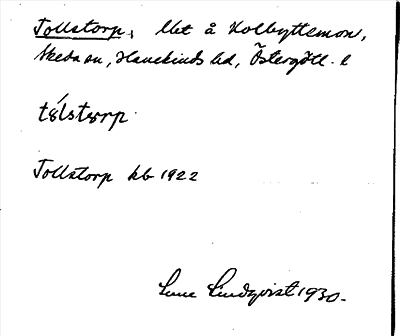 Tollstorp, lht å Kolbyttemon,
Skeda sn, Hanekinds hd, Östergötl. l
tɷ́lstɷrp
Tollstorp kb 1922
Sune Lindqvist 1930.